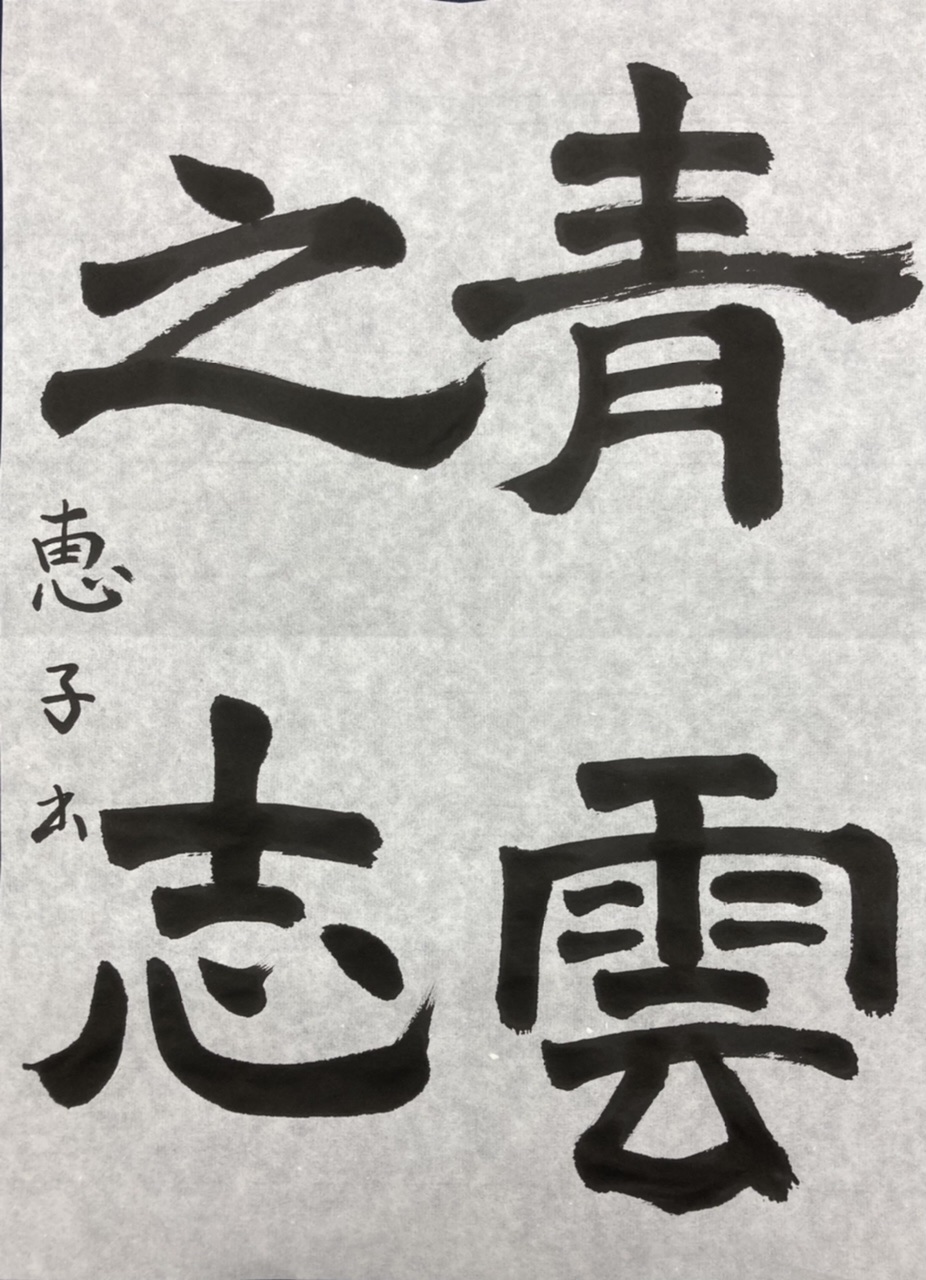 青雲
之志
恵子书